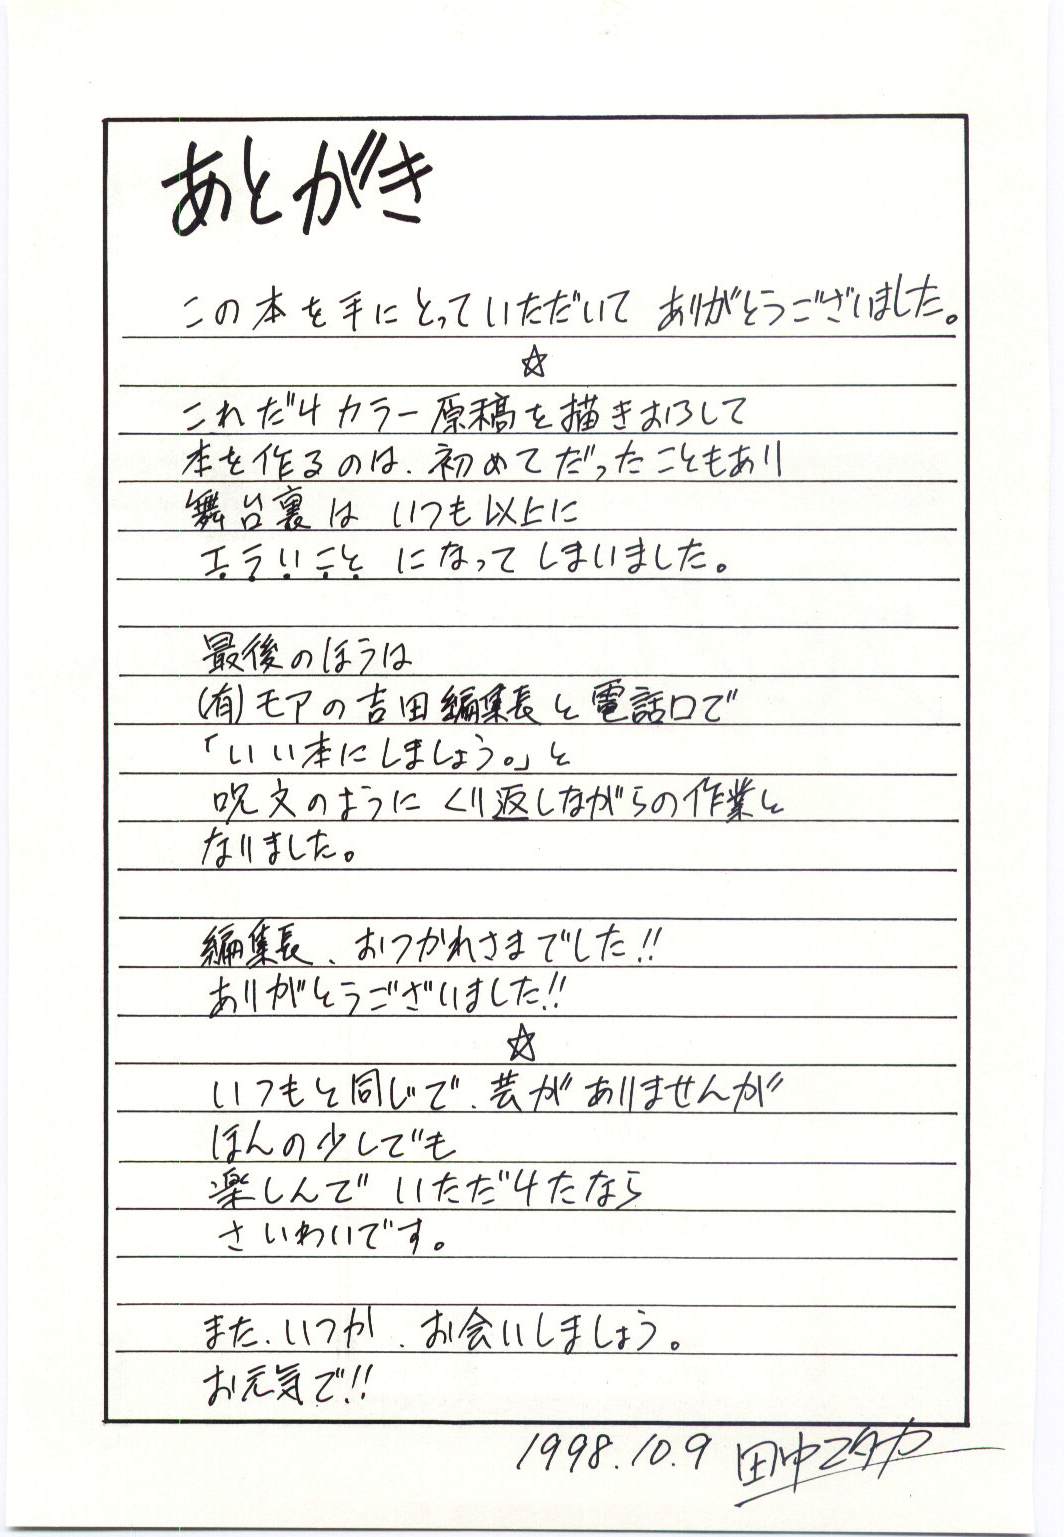 あとがき
この本を手にとっていただいて ありがとうございました。
☆
これだけカラー原稿を描きおろして
本を作るのは、初めてだったこともあり
舞台裏は いつも以上に
エラいこと になってしまいました。
最後のほうは
(有)モアの吉田編集長と電話口で
「いい本にしましょう。」と
呪文のように くり返しながらの作業と
なりました。
編集長、おつかれさまでした!!
ありがとうございました!!
☆
いつもと同じで、芸が ありませんが
ほんの少しでも
楽しんで いただけたなら
さいわいです。
また、いつか、お会いしましょう。
お元気で!!
1998.10.9 田中ユタカ